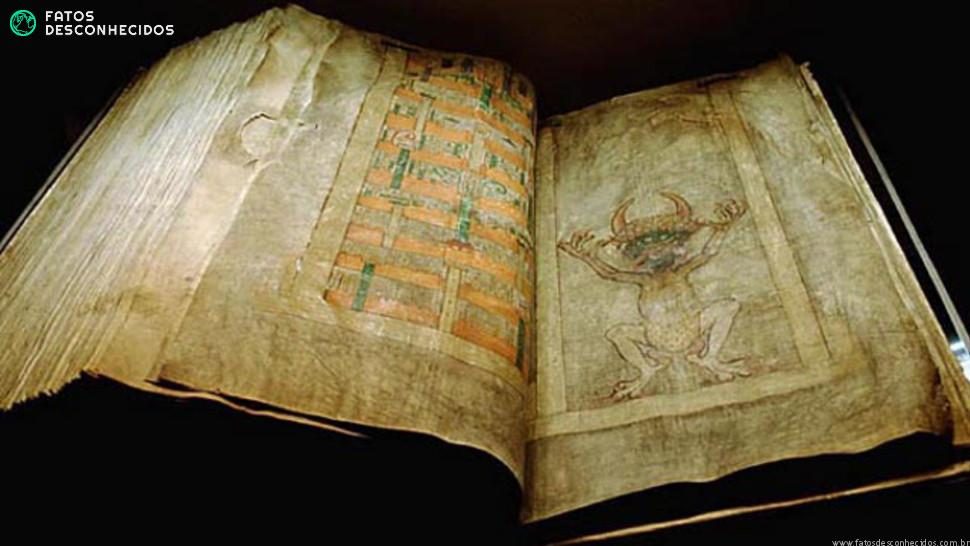 FATOS
DESCONHECIDOS
www.fatosdesconhecidos.com.br